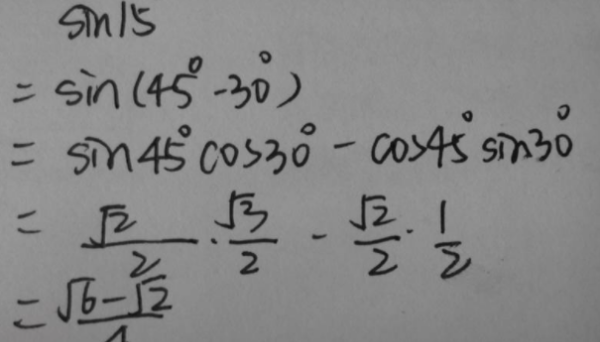 sin15
= sin(45°-30°)
= sin45°cos30° - cos45°sin30°
= √2/2 · √3/2 - √2/2 · 1/2
= (√6-√2)/4